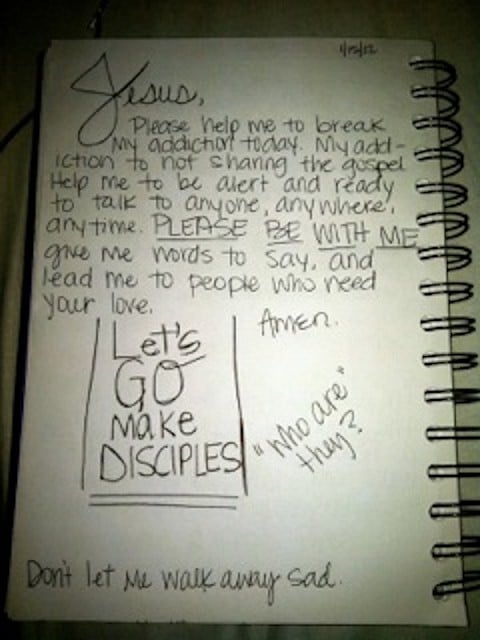 1/15/12
Jesus,
Please help me to break
my addiction today. My add-
iction to not sharing the gospel
Help me to be alert and ready
to talk to anyone, anywhere,
anytime. PLEASE BE WITH ME
give me words to say, and
lead me to people who need
your love.
Amen.
Let's
GO
make
DISCIPLES
"who are"
they?
Don't let me walk away sad.